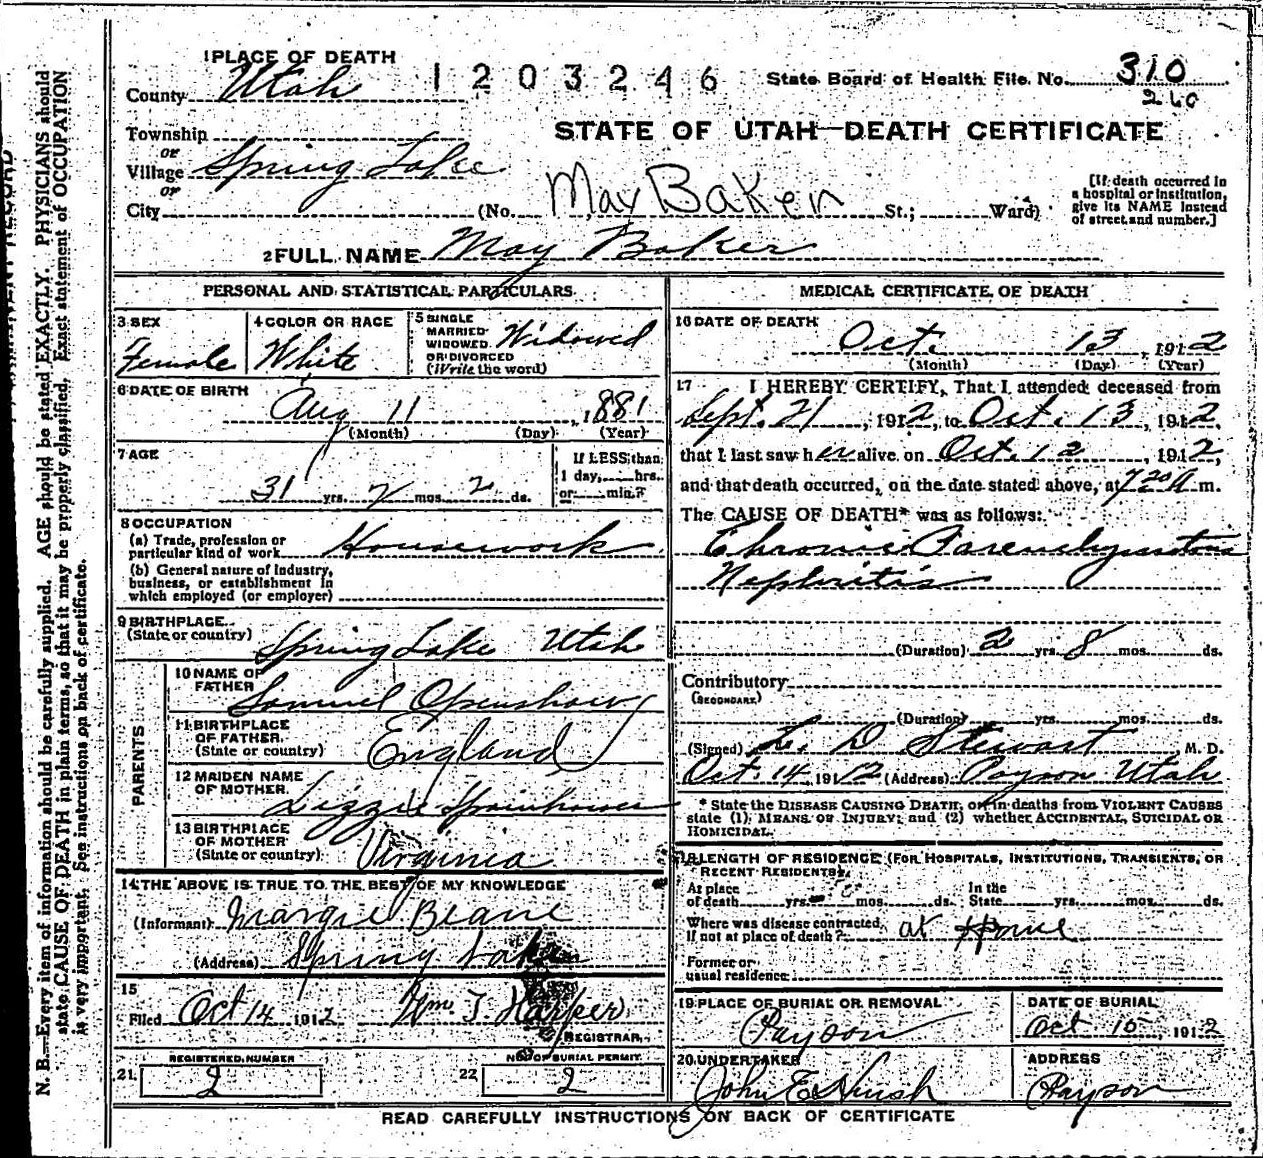 1 PLACE OF DEATH
County Utah
1203246
State Board of Health File No. 310
260
Township
or
Village Spring Lake
or
City (No. May Baker St.; Ward)
STATE OF UTAH—DEATH CERTIFICATE
[If death occurred in a hospital or institution, give its NAME instead of street and number.]
2 FULL NAME May Baker
PERSONAL AND STATISTICAL PARTICULARS
3 SEX
Female
4 COLOR OR RACE
White
5 SINGLE
MARRIED
WIDOWED
OR DIVORCED
(Write the word)
Widowed
6 DATE OF BIRTH
Aug 11, 1881
(Month) (Day) (Year)
7 AGE
31 yrs. 2 mos. 2 ds.
If LESS than
1 day, hrs.
or min.?
8 OCCUPATION
(a) Trade, profession or
particular kind of work Housework
(b) General nature of Industry,
business, or establishment in
which employed (or employer)
9 BIRTHPLACE
(State or country) Spring Lake Utah
PARENTS
10 NAME OF
FATHER Samuel Openshaw
11 BIRTHPLACE
OF FATHER
(State or country) England
12 MAIDEN NAME
OF MOTHER Lizzie
13 BIRTHPLACE
OF MOTHER
(State or country) Virginia
14 THE ABOVE IS TRUE TO THE BEST OF MY KNOWLEDGE
(Informant) Margie Beane
(Address) Spring Lake
15
Filed Oct 14 1912 Wm. J. Harper
REGISTRAR.
REGISTERED NUMBER
21. 2
NO. OF BURIAL PERMIT
22 2
MEDICAL CERTIFICATE OF DEATH
16 DATE OF DEATH
Oct. 13, 1912
(Month) (Day) (Year)
17 I HEREBY CERTIFY, That I attended deceased from
Sept. 21, 1912, to Oct. 13, 1912,
that I last saw her alive on Oct. 12, 1912,
and that death occurred, on the date stated above, at 7 20 A m.
The CAUSE OF DEATH* was as follows:
Chronic Parenchymatous
Nephritis
(Duration) 2 yrs. 8 mos. ds.
Contributory
(SECONDARY)
(Duration) yrs. mos. ds.
(Signed) L. D. Stewart, M. D.
Oct. 14 1912 (Address) Payson Utah
* State the DISEASE CAUSING DEATH, or in deaths from VIOLENT CAUSES
state (1) MEANS OF INJURY; and (2) whether ACCIDENTAL, SUICIDAL OR
HOMICIDAL.
18 LENGTH OF RESIDENCE (FOR HOSPITALS, INSTITUTIONS, TRANSIENTS, OR
RECENT RESIDENTS).
At place
of death yrs. mos. ds.
In the
State yrs. mos. ds.
Where was disease contracted,
If not at place of death? at Home
Former or
usual residence
19 PLACE OF BURIAL OR REMOVAL
Payson
DATE OF BURIAL
Oct 15, 1912
20. UNDERTAKER
John E Huish
ADDRESS
Payson
READ CAREFULLY INSTRUCTIONS ON BACK OF CERTIFICATE
N. B.—Every item of information should be carefully supplied. AGE should be stated EXACTLY. PHYSICIANS should
state CAUSE OF DEATH in plain terms, so that it may be properly classified. Exact statement of OCCUPATION
is very important. See instructions on back of certificate.